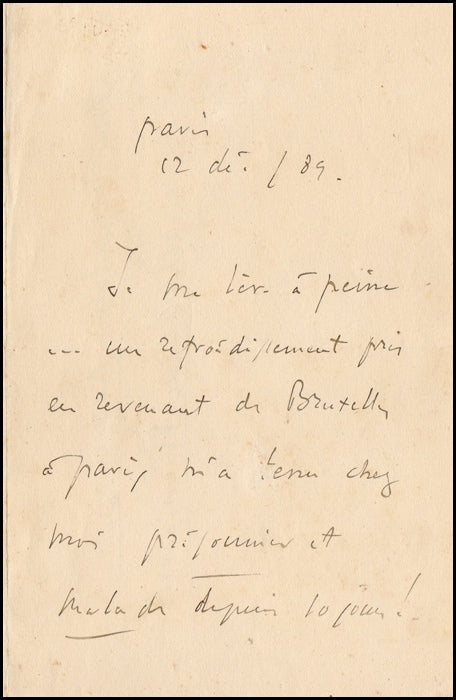 Paris
12 déc. / 89.
Je me lève à peine
... un refroidissement pris
en revenant de Bruxelles
à Paris, m'a tenu chez
moi prisonnier et
malade depuis 10 jours!.